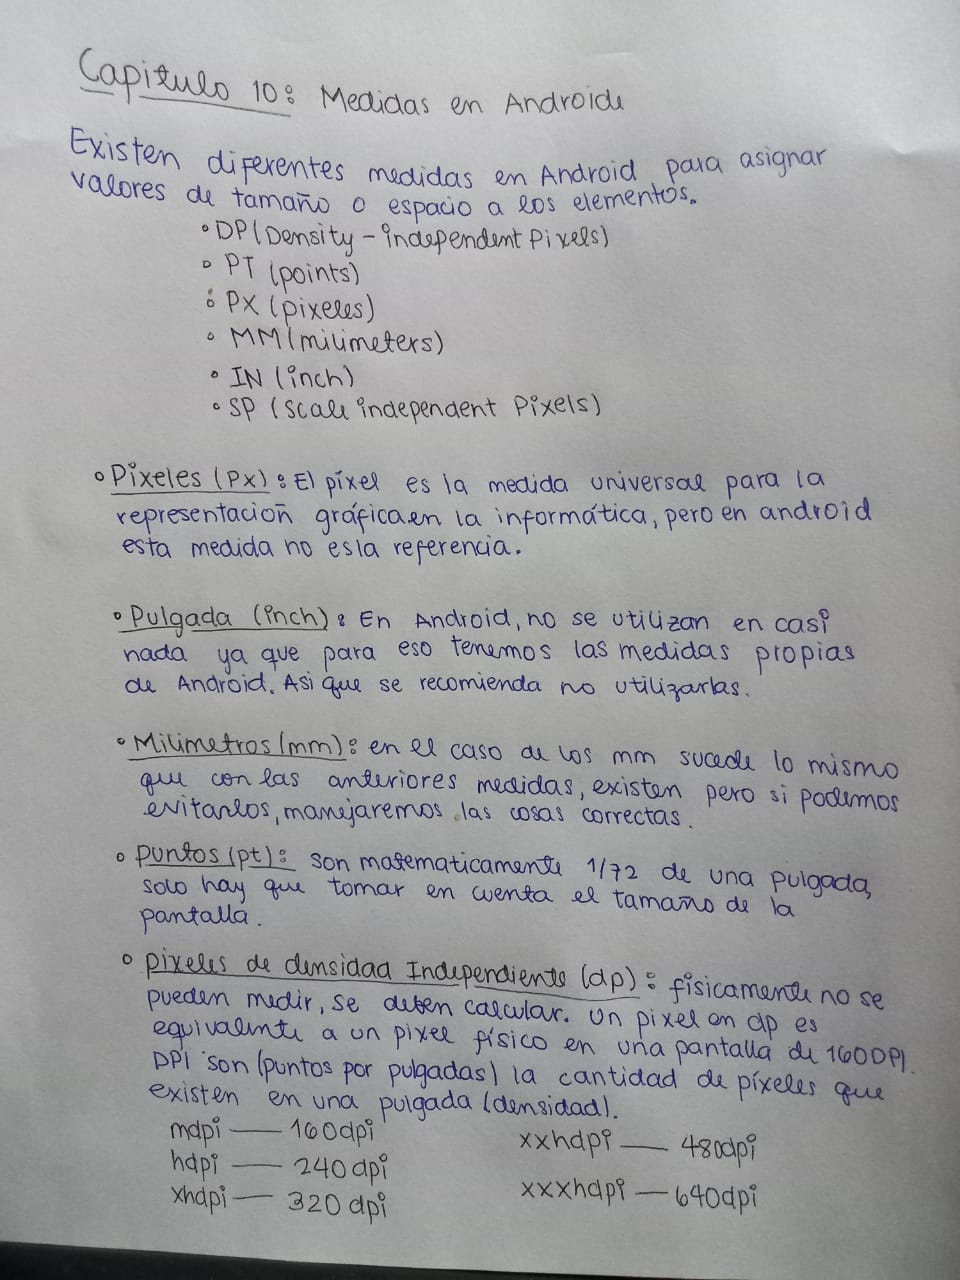 Capitulo 10: Medidas en Androide
Existen diferentes medidas en Android para asignar
valores de tamaño o espacio a los elementos.
• DP (Density - independent Pixels)
• PT (points)
• PX (pixeles)
• MM (milimeters)
• IN (inch)
• SP (scale independent Pixels)
• Píxeles (Px): El píxel es la medida universal para la
representación gráfica en la informática, pero en android
esta medida no es la referencia.
• Pulgada (inch): En Android, no se utilizan en casi
nada ya que para eso tenemos las medidas propias
de Android. Asi que se recomienda no utilizarlas.
• Milimetros (mm): en el caso de los mm sucede lo mismo
que con las anteriores medidas, existen pero si podemos
evitarlos, manejaremos las cosas correctas.
• puntos (pt): son matematicamente 1/72 de una pulgada,
solo hay que tomar en cuenta el tamaño de la
pantalla.
• pixeles de densidad Independiente (dp): físicamente no se
pueden medir, se deben calcular. Un pixel en dp es
equivalente a un pixel físico en una pantalla de 160DPI.
DPI son (puntos por pulgadas) la cantidad de píxeles que
existen en una pulgada (densidad).
mdpi — 160dpi
hdpi — 240dpi
xhdpi — 320 dpi
xxhdpi — 480dpi
xxxhdpi — 640dpi